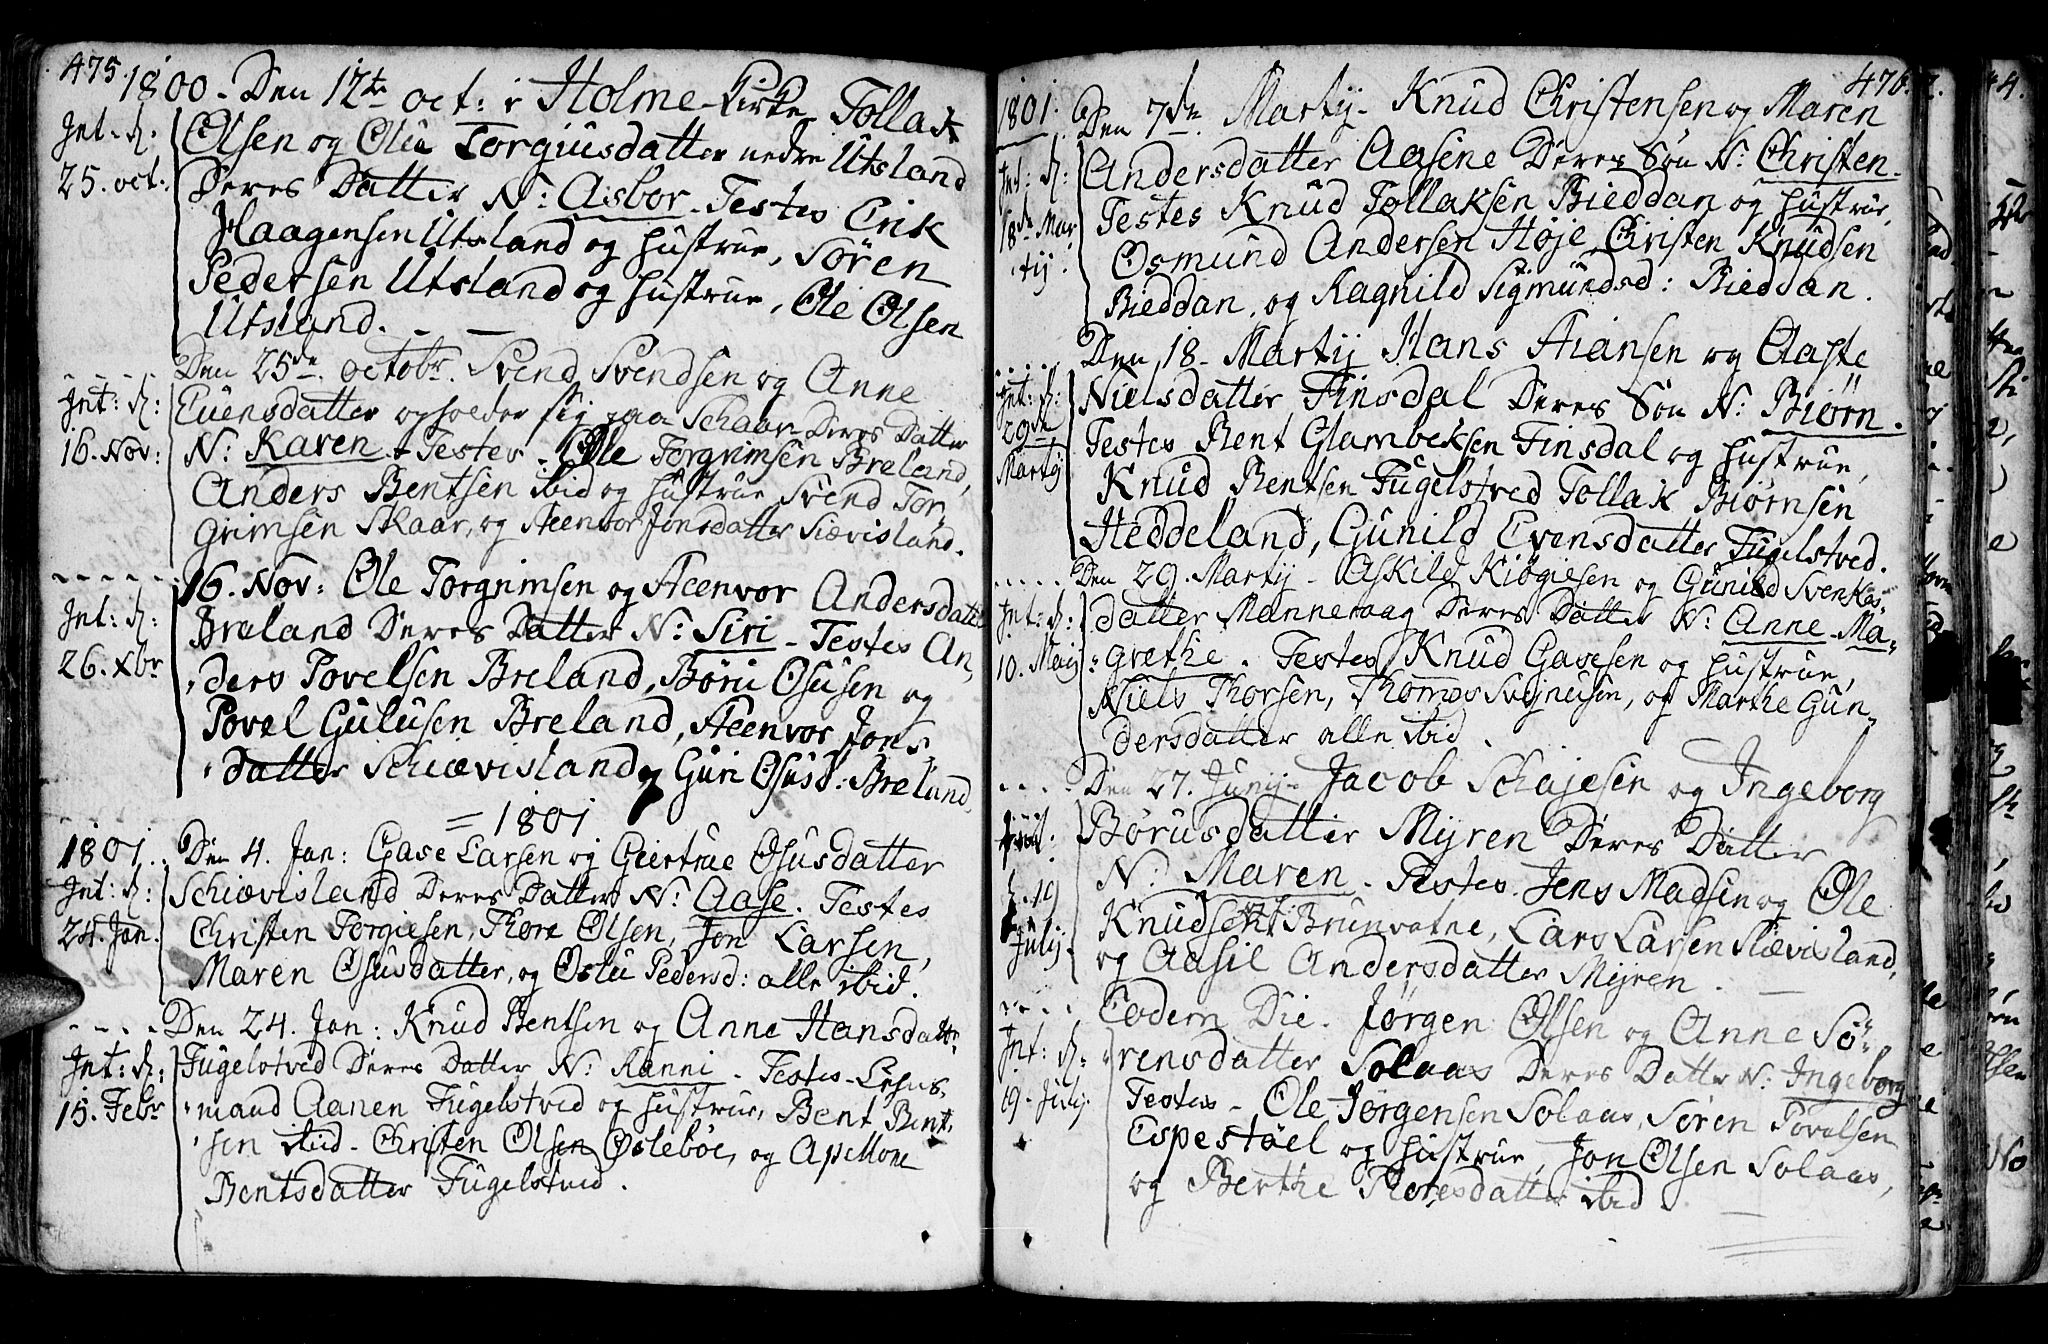 475.
1800. Den 12te oct: i Holme-Kirke Tollak
Int: K: Olsen og Olu Torgiusdatter nedre Utsland
25. oct: Deres Datter N: Asbor. Testes Erik
Haagensen Utsland og hustrue, Sören
Pedersen Utsland og hustrue, Ole Olsen
Utsland.
Den 25de octobr. Svend Svendsen og Anne
Int: K: Evensdatter opholder sig paa Schaar Deres Datter
16. Nov: N: Karen - Testes - Ole Torgrimsen Breland,
Anders Bentsen ibid og hustrue Svend Tor,
grimsen Skaar, og Steenvor Jonsdatter Siævisland.
16. Nov: Ole Torgrimsen og Steenvor Andersdatter
Int: K: Breland Deres Datter N: Siri - Testes An,
26. Xbr ders Povelsen Breland, Böru Osusen og
Povel Gulusen Breland, Steenvor Jons,
datter Schiævisland og Guri Osusd: Breland
= 1801
1801. Den 4. Jan: Gase Larsen og Geertrue Osusdatter
Int: K: Schiævisland Deres Datter N: Aase. Testes
24. Jan. Christen Torgiesen, Thore Olsen, Jon Larsen,
Maren Osusdatter, og Oslu Pedersd: alle ibid.
Den 24. Jan: Knud Bentsen og Anne Hansdattr
Int: K: Fugelstved Deres Datter N: Ranni - Testes - Lehns,
15. Febr mand Aanen Fugelstved og hustrue, Bent Bent,
sen ibid - Christen Olsen Oslebøe, og Apellone
Bentsdatter Fugelstved.
476.
1801. Den 7de Martij - Knud Christensen og Maren
Int: K: Andersdatter Aasene Deres Sön N: Christen.
18de Mar Testes Knud Tollaksen Bieddan og hustrue,
tij. Osmund Andersen Høje, Christen Knudsen
Bieddan, og Ragnild Sigmundsd: Bieddan.
Den 18. Martij Hans Aiansen og Aaste
Int: K: Nielsdatter Finsdal Deres Sön N: Biörn.
29de Testes Bent Glambeksen Finsdal og hustrue,
Martij Knud Bentsen Fugelstved Tollak Biørnsen
Heddeland, Gunild Evensdatter Fugelstved.
Den 29. Martij - Askild Kiøgiesen og Gunild Svenkes,
Int: K: datter Manneraag Deres Datter N: Anne Ma,
10. Maij grethe. Testes Knud Gasesen og hustrue,
Niels Thorsen, Thomes Svejnusen, og Marthe Gun,
dersdatter alle ibid.
Den 27. Junij - Jacob Schajesen og Ingeborg
Börusdatter Myren Deres Datter
N: Maren. Testes. Jens Madsen og Ole
19 Knudsen Brunvatne, Lars Larsen Siævisland,
Julij og Aasil Andersdatter Myren.
Eodem Die. Jørgen Olsen og Anne Sö,
Int: K: rensdatter Solaas Deres Datter N: Ingeborg
19. Julij Testes - Ole Jørgensen Solaas, Sören Povelsen
Espestöel og hustrue, Jon Olsen Solaas,
og Berthe Thoresdatter ibid.